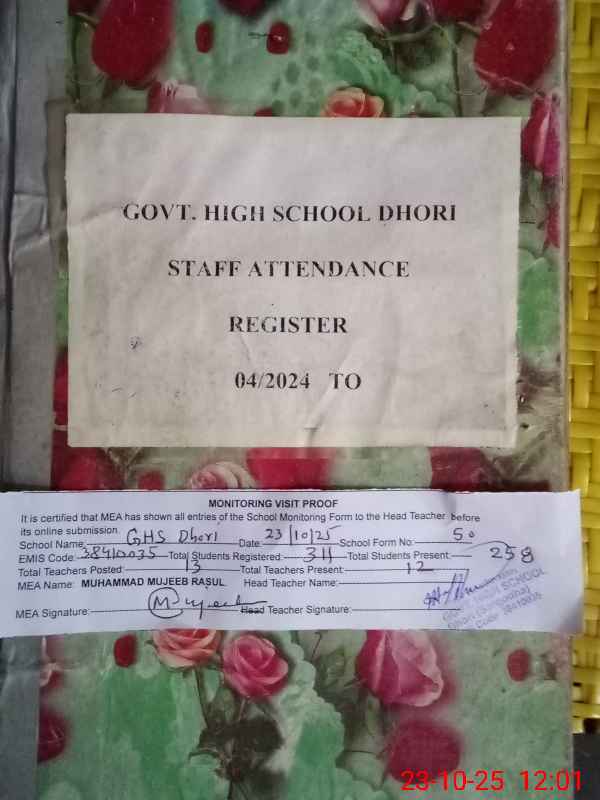 GOVT. HIGH SCHOOL DHORI
STAFF ATTENDANCE
REGISTER
04/2024 TO
MONITORING VISIT PROOF
It is certified that MEA has shown all entries of the School Monitoring Form to the Head Teacher before
its online submission.
School Name: GHS Dhori Date: 23/10/25 School Form No: 50
EMIS Code: 38410035 Total Students Registered: 311 Total Students Present: 258
Total Teachers Posted: 13 Total Teachers Present: 12
MEA Name: MUHAMMAD MUJEEB RASUL Head Teacher Name:
MEA Signature: Mujeeb Head Teacher Signature:
GOVT. HIGH SCHOOL
Dhori (Sargodha)
Code 38410035
23-10-25 12:01